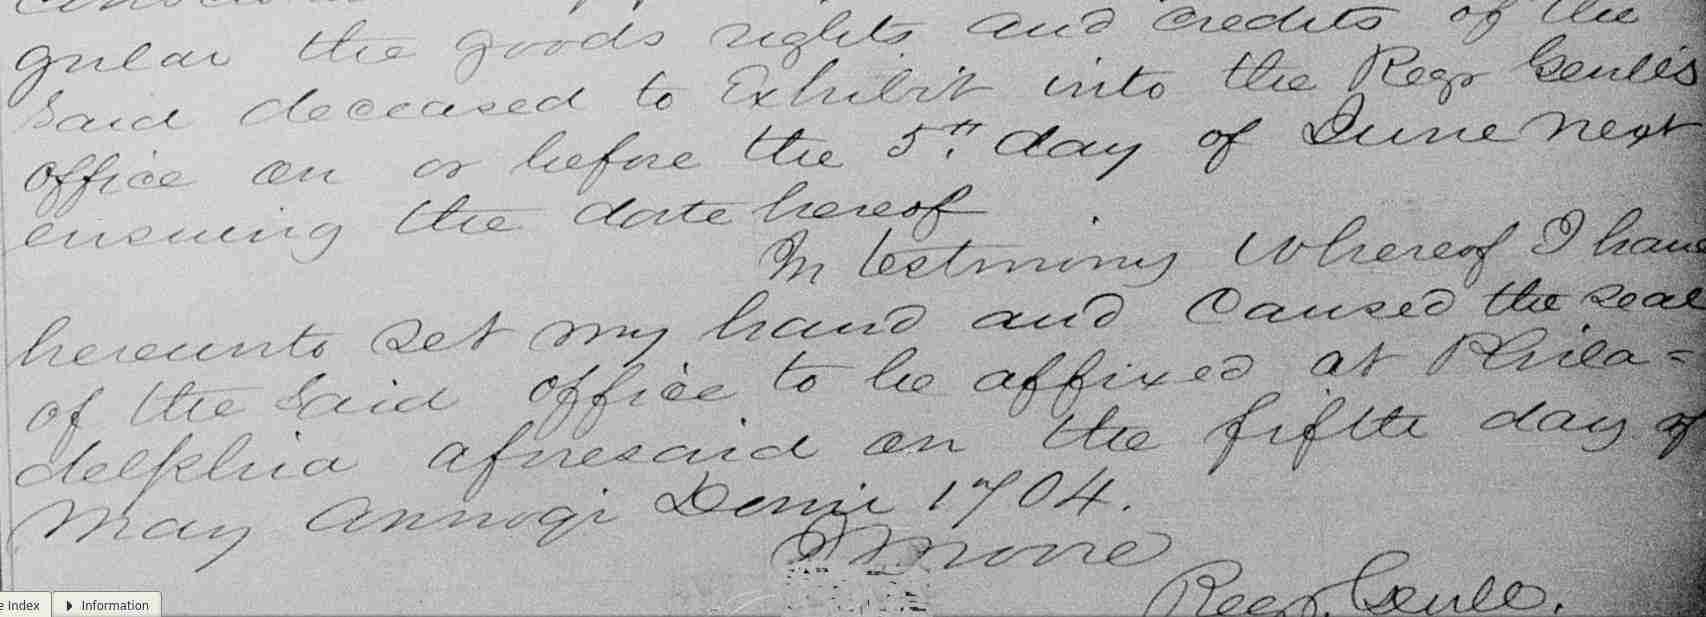 gular the goods rights and credits of the
Said deceased to Exhibit into the Regr Genlls
office on or before the 5th. day of June next
ensuing the date hereof
In testimony Whereof I have
hereunto set my hand and Caused the seal
of the Said office to be affixed at Phila=
delphia aforesaid on the fifth day of
May Annoqr Domi 1704.
Moore
Regr. Genll.
e Index
Information